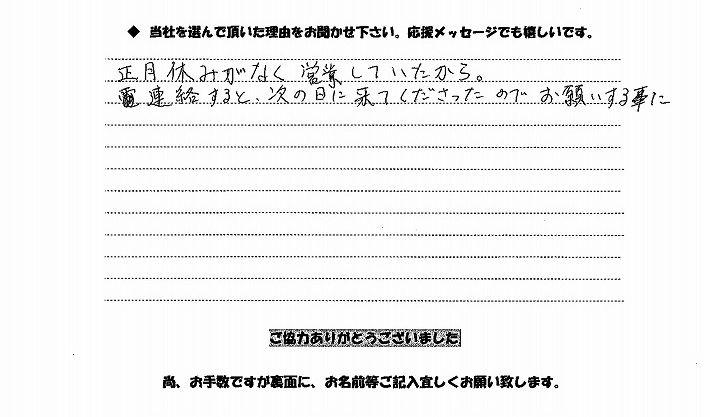 ◆ 当社を選んで頂いた理由をお聞かせ下さい。応援メッセージでも嬉しいです。
正月休みがなく営業していたから。
連絡すると、次の日に来てくださったのでお願いする事に
ご協力ありがとうございました
尚、お手数ですが裏面に、お名前等ご記入宜しくお願い致します。